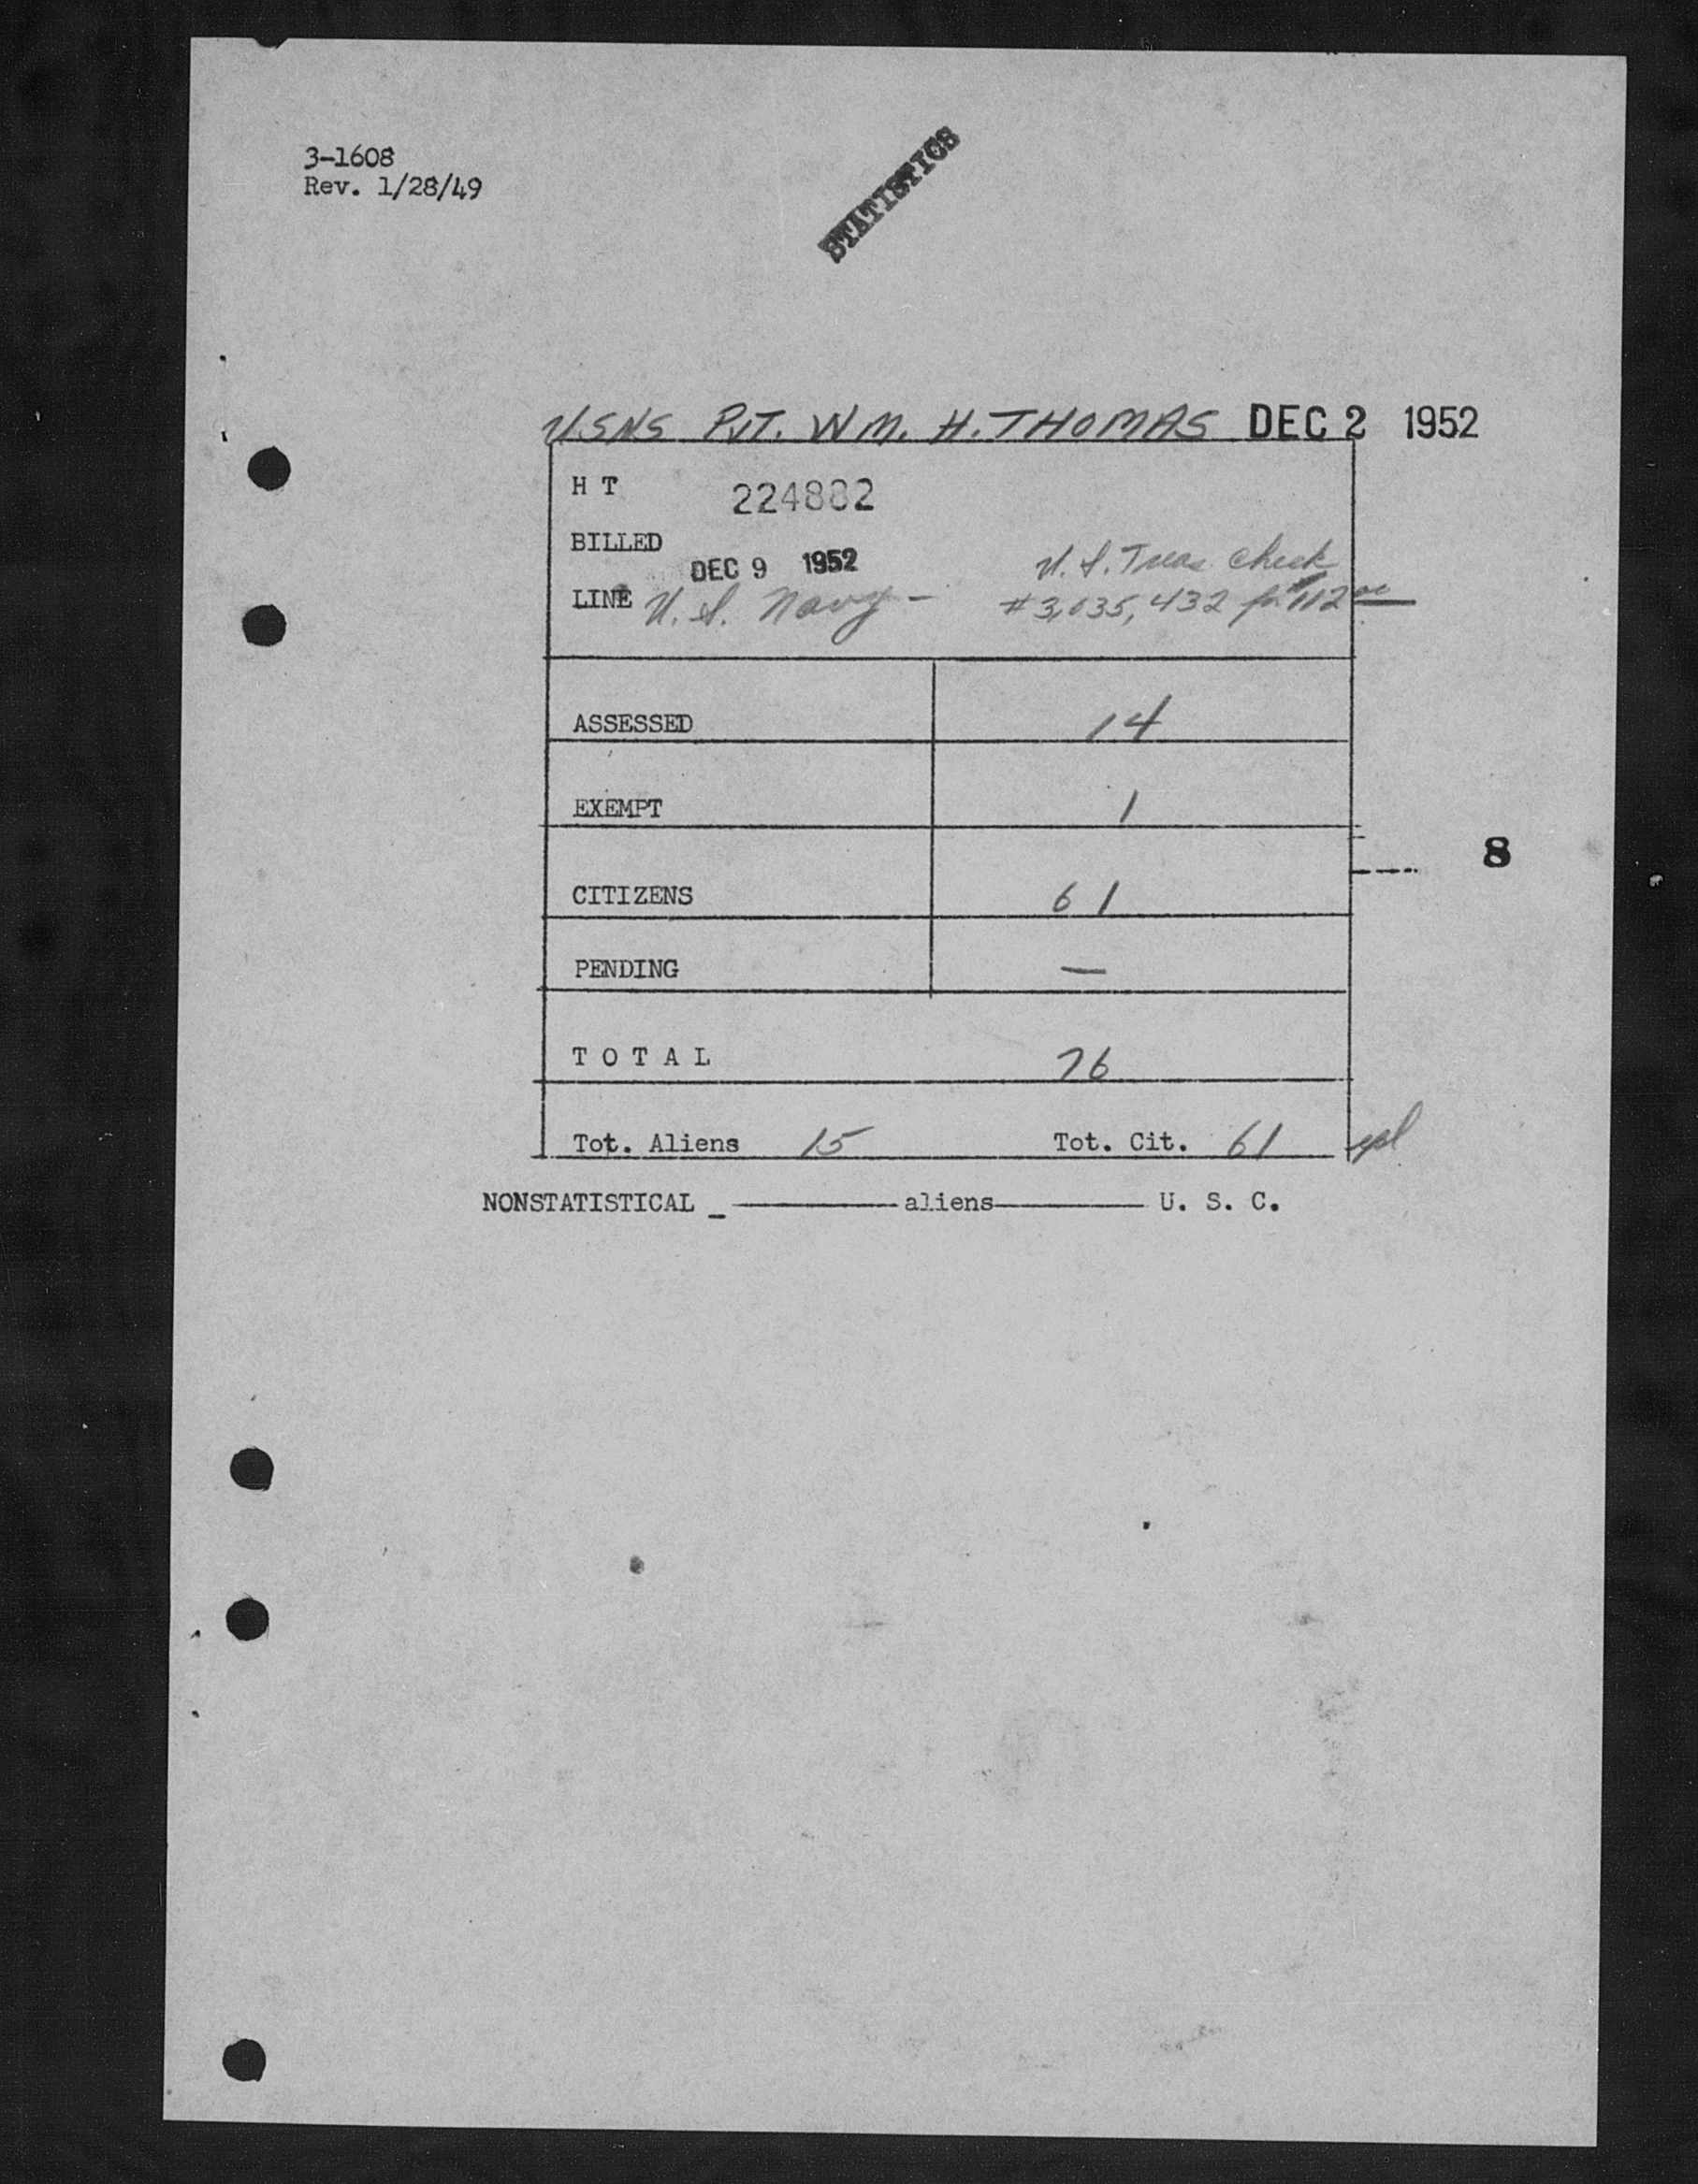 3-1608
Rev. 1/28/49
STATISTICS
USNS PVT. WM. H. THOMAS DEC 2 1952
H T 224882
BILLED
DEC 9 1952 U. S. Treas Check
LINE U. S. Navy - #3,035,432 for $112 00
ASSESSED 14
EXEMPT 1
8
CITIZENS 61
PENDING —
T O T A L 76
Tot. Aliens 15 Tot. Cit. 61
NONSTATISTICAL _ ———— aliens———— U. S. C.